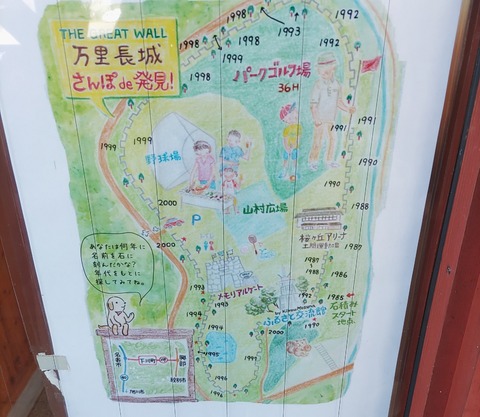 THE GREAT WALL
万里長城
さんぽde発見!
1998
1998
1999
1998
1998
1993
1992
1992
パークゴルフ場
36H
1991
1991
1990
1990
1999
1999
野球場
2000
P
2000
山村広場
桜ヶ丘アリーナ
1988
1987
1987
1988
1986
1985
石積み
スタート
地点
あなたは何年に
名前を石に
刻んだかな?
年代をもとに
探してみてね。
メモリアルゲート
1993
1993
1994
1994
1995
1997
1996
1992
ふるさと交流館
2000
1990
名寄市
下川町